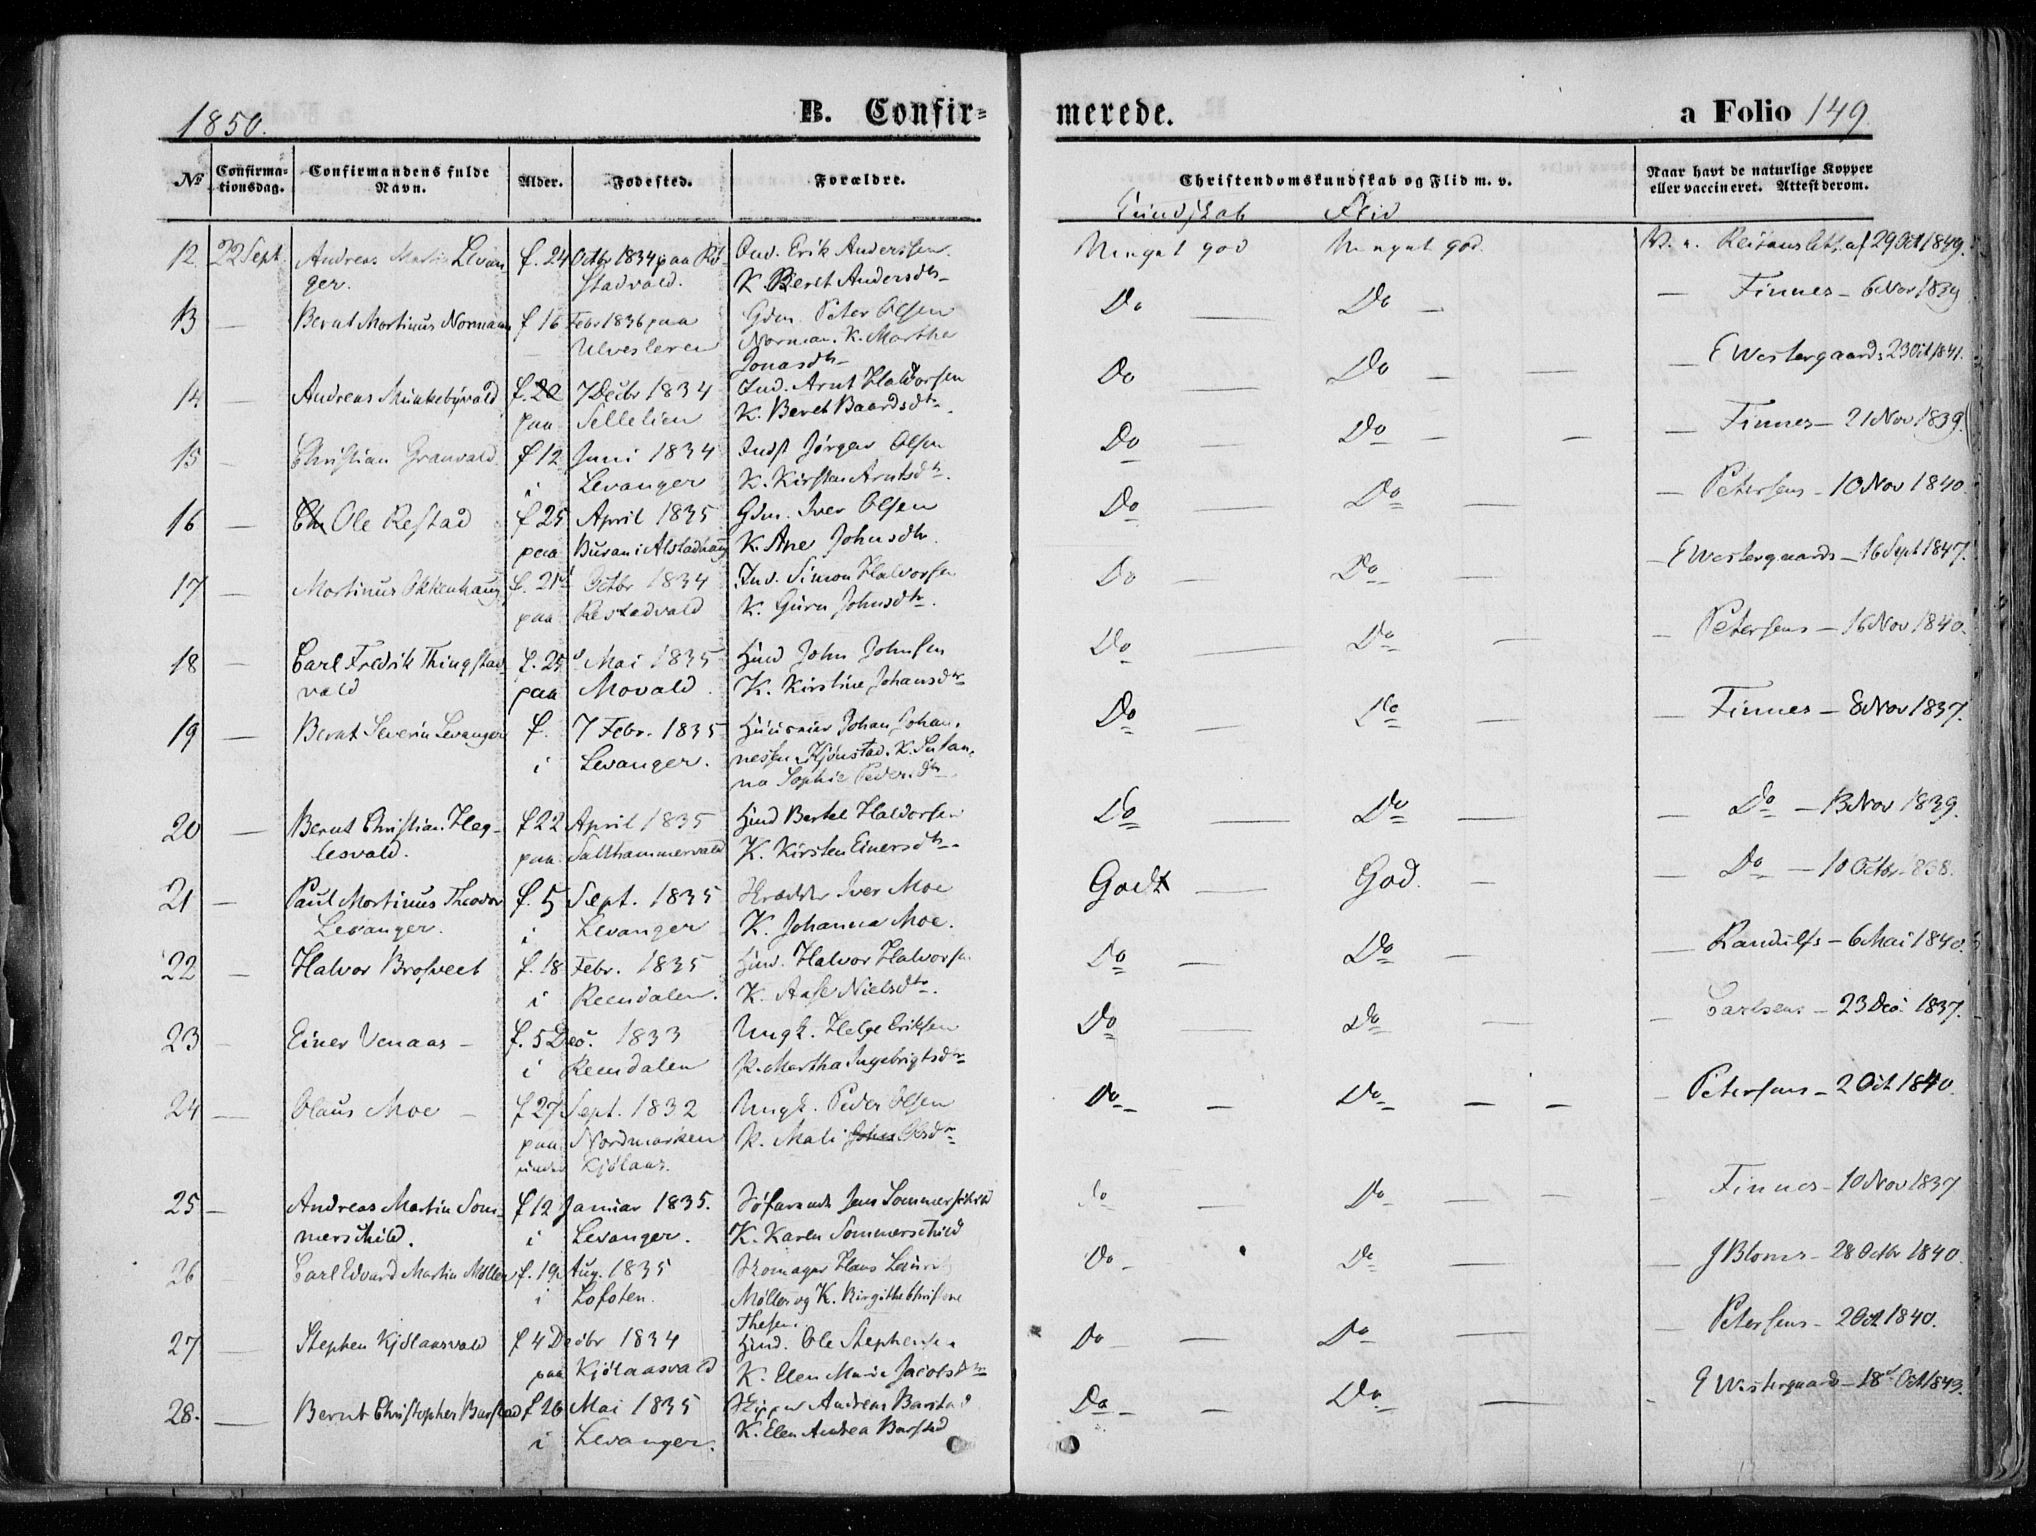 1850. B. Confir=
merede. a Folio 149
No Confirma=tionsdag. Confirmandens fulde Navn. Alder. Fødested. Forældre. Christendomskundskab og Flid m. v. Naar havt de naturlige Kopper eller vaccineret. Attest derom.
Kundskab Flid
12 22 Sept. Andreas Martin Levan f. 24 Octbr 1834 paa Re Ind. Erik Anderssen Meget god Meget god. V. a. Reitans Att. af 29 Oct 1849.
ger. stadvald. K. Beret Andersdtr
13 — Bernt Martinus Normann f 16 Febr 1836 paa Gdm. Peter Olsen Do Do — — Finnes — 6 Nov 1839
Ulvesleren Norman. K. Martha
Jonasdtr
14 — Andreas Munkebyvald f. 7 Decbr 1834 Ind. Arnt Haldorsen Do — Do — — E Westergaards 23 Oct 1841.
paa Sellelien K. Beret Baardsdtr.
15 — Christian Granvald f 12 Juni 1834 Indst Jørgen Olsen Do — Do — — Finnes — 21 Nov 1839.
i Levanger K. Kirsten Arntsdtr.
16 — Ole Restad f 25 April 1835 Gdm. Iver Olsen Do — Do — — Petersens — 10 Nov 1840.
paa Buran i Alstadhaug K. Ane Johnsdtr.
17 — Martinus Okkenhaug f. 21 Octbr 1834 Ind. Simon Halvorsen Do — Do — — E Westergaards — 16 Sept 1847.
paa Restadvald K. Guru Johnsdtr.
18 — Carl Fredrik Thingstad f. 25 Mai 1835 Huus John Johnsen Do — Do — — Petersens — 16 Nov 1840.
vald paa Movald. K. Kirstine Johansdtr
19 — Bernt Severin Levanger f. 7 Febr. 1835 Johan Johan- Do — Do — — Finnes — 8 Nov 1837.
i Levanger. nessen Hjønstad. K. Susan-
na Sophie Pedersdtr
20 — Bernt Christian Heg- f 22 April 1835 Huus Bertel Haldorsen Do — Do — — Do — 13 Nov 1839.
lesvald. paa Salthammervald K. Kirsten Einersdtr.
21 — Paul Martinus Theodor f. 5 Sept. 1835 Skrædder Iver Moe Godt — God. — — Do — 10 Octbr 1838.
Levanger. i Levanger K. Johanna Moe.
22 — Halvor Brosveet f. 18 Febr. 1835 Huus. Halvor Halvorsen Do — Do — — Randulfs — 6 Mai 1840.
i Reendalen. K. Aase Nielsdtr.
23 — Einer Venaas — f. 5 Dec. 1833 Ungk. Helge Eriksen Do — Do — — Carlsens — 23 Dec. 1837.
i Reendalen P. Martha Ingebrigtsdtr
24 — Olaus Moe — f 27 Sept. 1832 Ungk. Peder Olsen Do — Do — — Petersens — 2 Oct 1840.
paa Nordmarken P. Mali Olsdtr
under Kjölaas.
25 — Andreas Martin Som- f 12 Januar 1835. Søfarende Jens Sommerschild Do — Do — — Finnes — 10 Nov 1837
merschild. i Levanger. K. Karen Sommerschild
26 Carl Edvard Martin Møller f. 19 Aug. 1835 Skomager Hans Møller Do — Do — — J Bloms — 28 Octbr 1840.
i Lofoten. og K. Birgithe
Thesen.
27 — Stephen Kjölaasvald f 4 Decbr 1834 Huus. Ole Stephensen Do — Do — — Petersens — 2 Oct 1840.
paa Kjölaasvald K. Elen Maria Jacobsdtr
28. — Bernt Christopher Barstad f 26 Mai 1835 Skipper Andreas Barstad Do — Do — — E Westergaards — 18 Oct 1843.
i Levanger. K. Elen Andrea Barstad